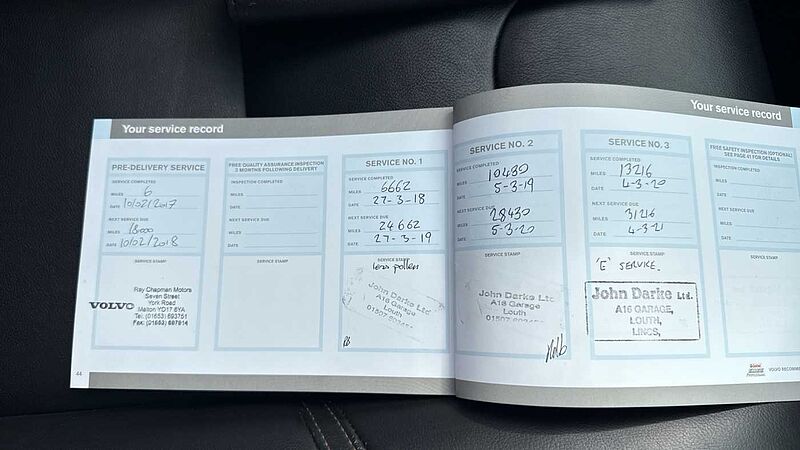 Your service record
PRE-DELIVERY SERVICE
SERVICE COMPLETED
MILES 6
DATE 10/02/2017
NEXT SERVICE DUE
MILES 18000
DATE 10/02/2018
SERVICE STAMP
VOLVO
Ray Chapman Motors
Seven Street
York Road
Malton YD17 6YA
Tel: (01653) 693751
Fax: (01653) 697914
44
FREE QUALITY ASSURANCE INSPECTION
3 MONTHS FOLLOWING DELIVERY
INSPECTION COMPLETED
MILES
DATE
NEXT SERVICE DUE
MILES
DATE
SERVICE STAMP
SERVICE NO. 1
SERVICE COMPLETED
MILES 6662
DATE 27-3-18
NEXT SERVICE DUE
MILES 24662
DATE 27-3-19
SERVICE STAMP
less pollen
John Darke Ltd
A16 Garage
Louth
SERVICE NO. 2
SERVICE COMPLETED
MILES 10430
DATE 5-3-19
NEXT SERVICE DUE
MILES 28430
DATE 5-3-20
SERVICE STAMP
John Darke Ltd
A16 Garage
Louth
Your service record
SERVICE NO. 3
SERVICE COMPLETED
MILES 13216
DATE 4-3-20
NEXT SERVICE DUE
MILES 31216
DATE 4-3-21
SERVICE STAMP
'E' SERVICE.
John Darke Ltd.
A16 GARAGE,
LOUTH,
LINCS,
FREE SAFETY INSPECTION (OPTIONAL)
SEE PAGE 41 FOR DETAILS
INSPECTION COMPLETED
MILES
DATE
NEXT SERVICE DUE
MILES
DATE
SERVICE STAMP
VOLVO RECOMME